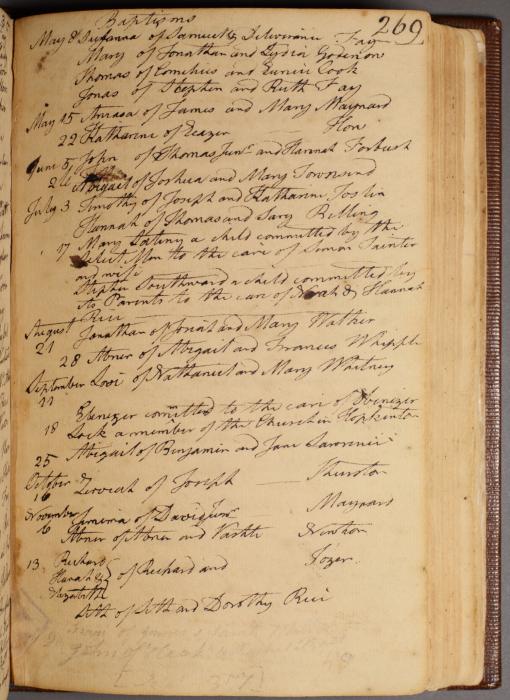 Baptisms 269
May 8 Susanna of Samuel & Deliverance Fay
Mary of Jonathan and Lydia Godenow
Thomas of Cornelius and Eunice Cook
Jonas of Stephen and Ruth Fay
May 15 Antasa of James and Mary Maynard
22 Katharine of Eeazer How
June 5 John of Thomas Junr and Hannah Forbush
26 Abigail of Joshua and Mary Townsend
July 3 Timothy of Joseph and Katharine Joslin
Hannah of Thomas and Sary Billing
17 Mary a child committed by the
Select Men to the care of Simon Tainter
and wife
Stephen Southward a child committed by
its Parents to the care of Noah & Hannah
Rice
August Jonathan of Josiah and Mary Wather
21
28 Abner of Abigail and Francis Whipple
September Lovi of Nathaniel and Mary Whitney
11
Ebenezer comitted to the care of Ebenezer
18 Lock a member of the Church in Hopkinton
Abigail of Benjamin and Jane Lawrence
25
October Zeroiah of Joseph — Thurston
16
November Jemima of David Junr Maynard
6 Abner of Abner and Vashti Newton
13 Richard
Hannah & of Richard and Tozer
Elizabeth
Seth of Seth and Dorothy Rice